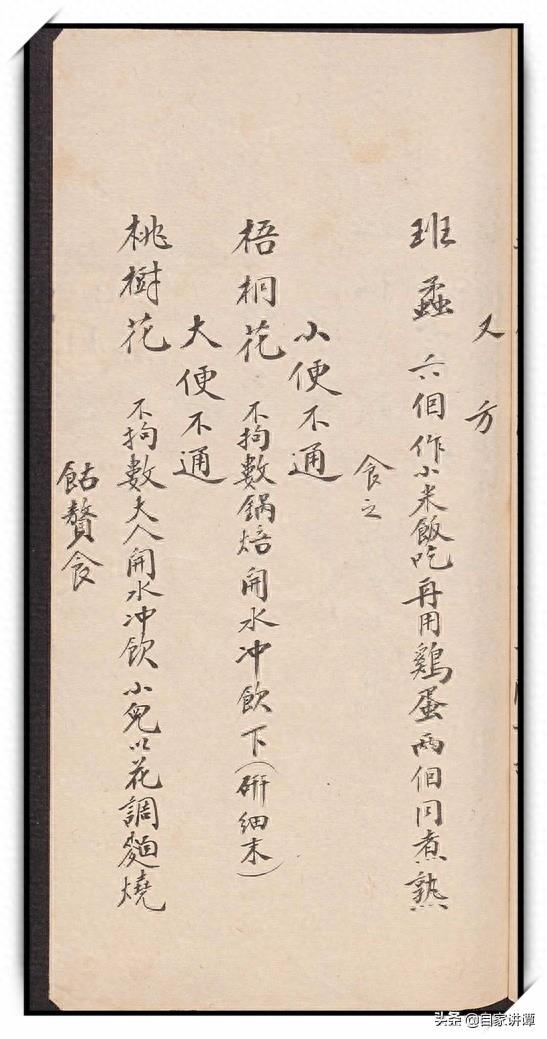 又方
班蝥 六個作小米飯吃再用鷄蛋兩個同煮熟
食之
小便不通
梧桐花 不拘數鍋焙開水冲飲下（研細末）
大便不通
桃樹花 不拘數大人開水冲飲小兒以花調麵燒
餂贅食
头条 @自家讲谭